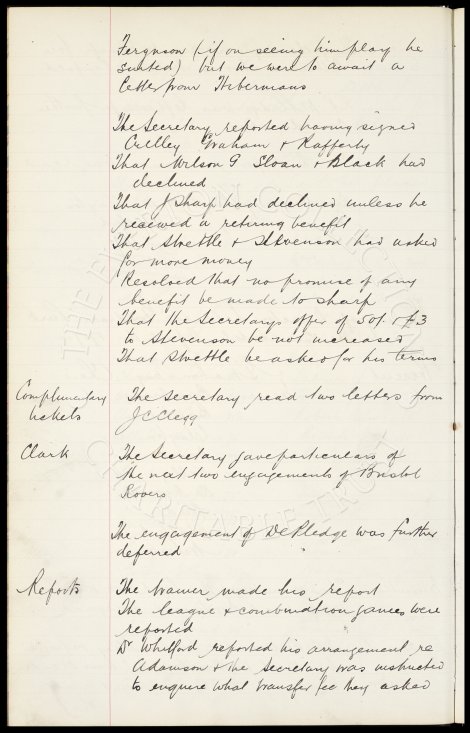 Ferguson (if on seeing him play he
suited) but we were to await a
letter from Hibernians
The Secretary reported having signed
Crelley Graham & Rafferty
That Wilson G Sloan & Black had
declined
That J Sharp had declined unless he
received a retiring benefit
That Settle & Stevenson had asked
for more money
Resolved that no promise of any
benefit be made to Sharp
That the Secretarys offer of 50/- & £3
to Stevenson be not increased
That Settle be asked for his terms
Complimentary
tickets
The Secretary read two letters from
J C Clegg
Clark
The Secretary gave particulars of
the next two engagements of Bristol
Rovers
The engagement of De Pledge was further
deferred
Reports
The trainer made his report
The league & combination games were
reported
Dr Whitford reported his arrangement re
Adamson & the Secretary was instructed
to enquire what transfer fee they asked
THE EVERTON COLLECTION
CHARITABLE TRUST